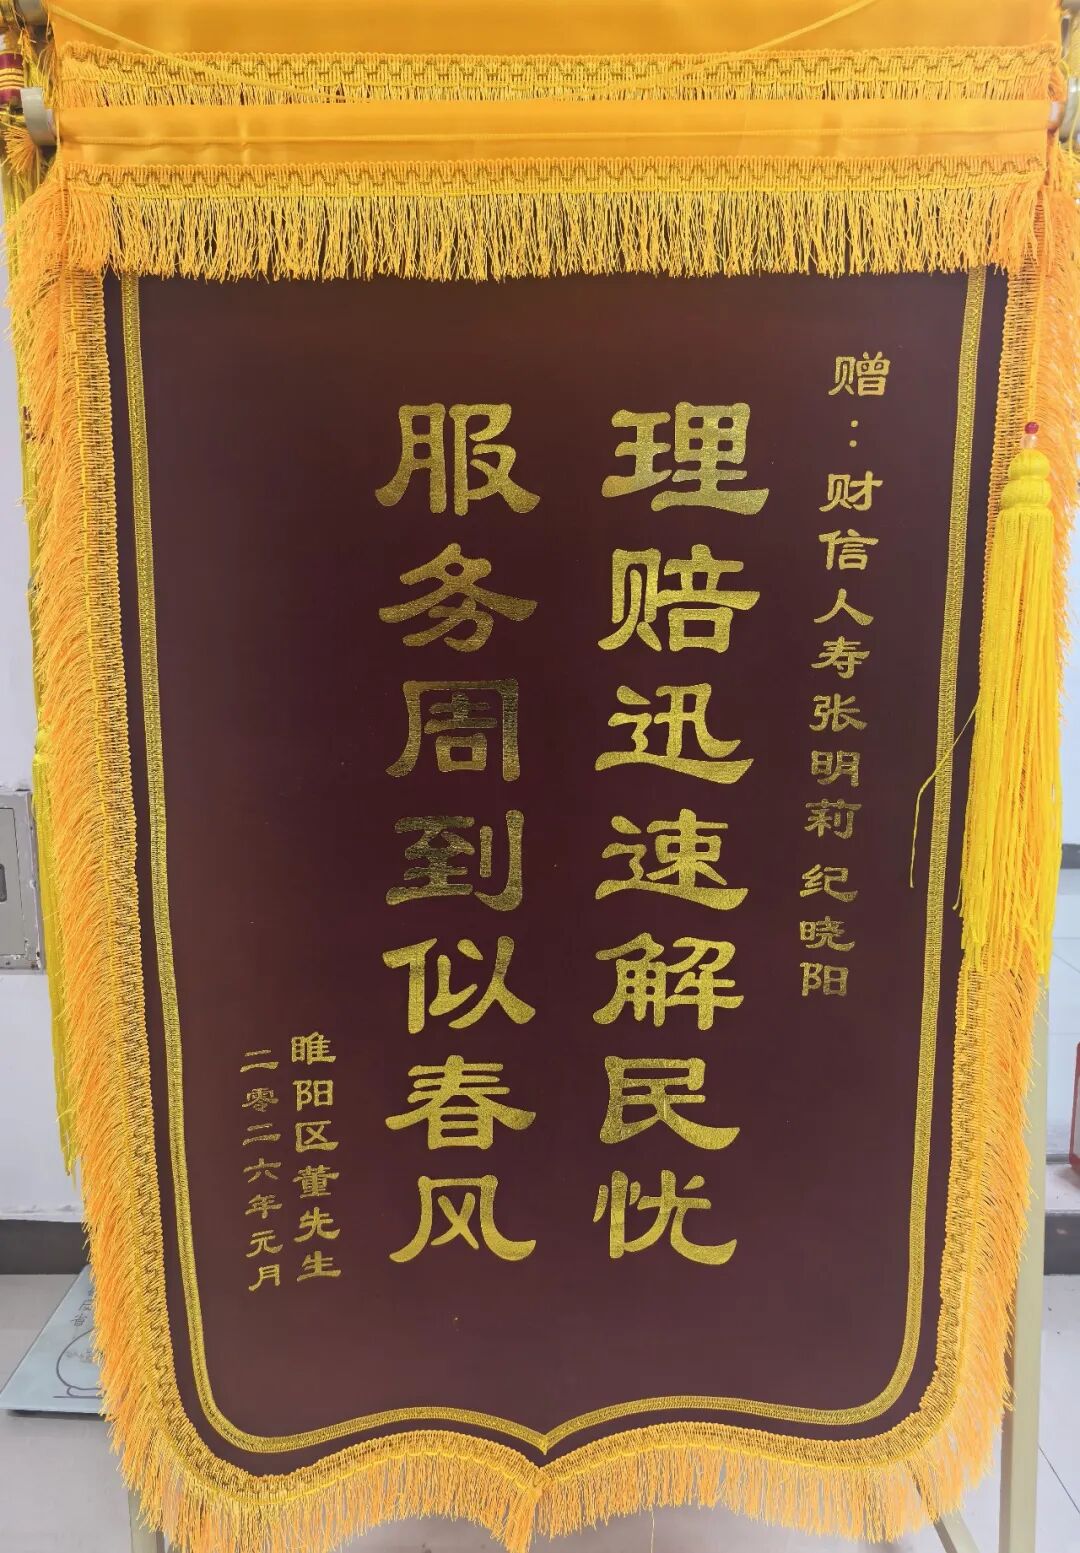 赠：财信人寿张明莉 纪晓阳
理赔迅速解民忧
服务周到似春风
睢阳区董先生
二零二六年元月